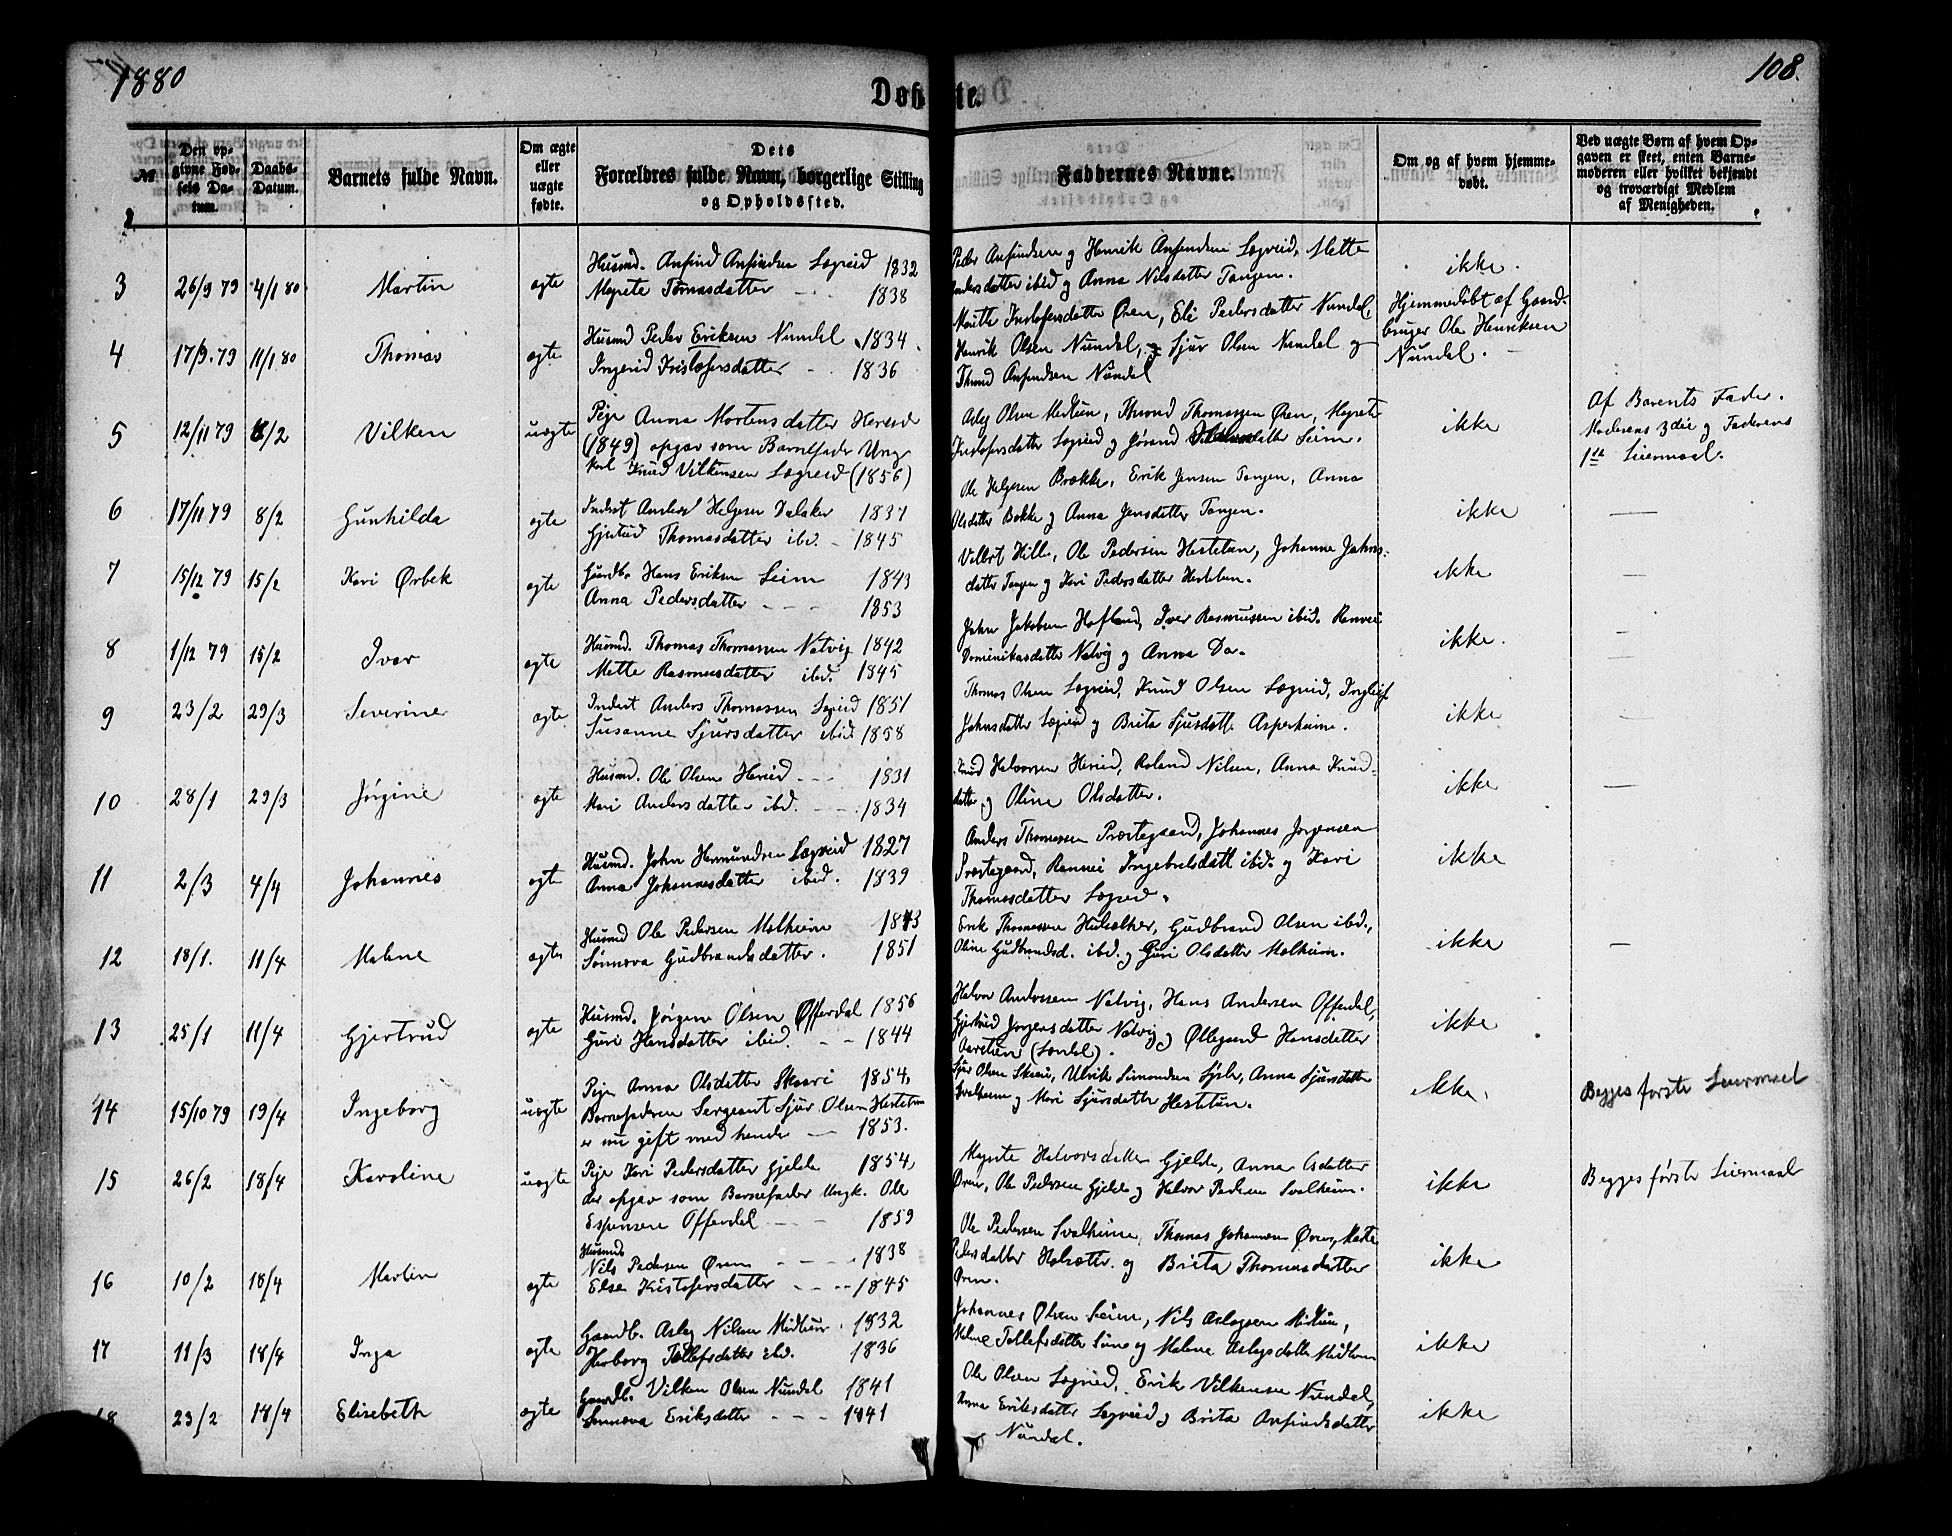 1880
108.
Døbte.
№
Den opgivne Fødsels Datum.
Daabs-Datum.
Barnets fulde Navn.
Om ægte eller uægte fødte.
Dets Forældres fulde Navn, borgerlige Stilling og Opholdssted.
Faddernes Navne.
Om og af hvem hjemmedøbt.
Ved uægte Børn af hvem Opgaven er skeet, enten Barnemoderen eller hvilket bekjendt og troværdigt Medlem af Menigheden.
3 26/9 79 4/1 80 Martin ægte
Husmd. Anfind Anfindsen Lægreid 1832
Megrete Tomasdatter 1838
Peder Anfindsen og Henrik Anfindsen Lægreid, Mette
datter ibid og Anna Nilsdatter Tangen.
ikke.
4 17/9. 79 11/1 80 Thomas ægte
Husmd Peder Eriksen Nundal 1834
Ingerid Kristofersdatter 1836
Øren, Eli Pedersdatter Nundal,
Henrik Olsen Nundal, Sjur Olsen Nundal og
Anfindsen Nundal
Hjemmedøbt af Gaard-
bruger Ole Henriksen
Nundal.
5 12/11 79 8/2 Vilken uægte
Pige Anna Mortensdatter Hereid
(1849) opgav som Barnefader Ung-
karl Knud Vilkensen Lægreid (1856)
Olsen Midtun, Thomassen Øren, Megrete
Lægreid og Jørand Seim.
ikke
Af Barnets Fader.
Moderens 3die og Faderens
1ste Leiermaal.
6 17/11 79 8/2 Gunhilda ægte
Inderst Anders Helgesen Dalaker 1837
Gjertrud Thomasdatter ibd. 1845
Ole Helgesen Brække, Erik Jensen Tangen, Anna
Olsdatter Bakke og Anna Jensdatter Tangen.
ikke
7 15/12 79 15/2 Kari Ørbek ægte
Gaardbr Hans Eriksen Seim 1843
Anna Pedersdatter 1853
Hille, Ole Pedersen Hestetun, Johanne Johns-
datter Tangen og Kari Pedersdatter Hestetun.
ikke
8 1/12 79 15/2 Ivar ægte
Husmd. Thomas Thomassen Natvig 1842
Mette Rasmusdatter ibd. 1845
John Jakobsen Hofland, Iver Rasmussen ibid. Rannei
Dominikusdatter Natvig og Anna Do.
ikke.
9 23/2 29/3 Severine ægte
Inderst Anders Thomassen Lægreid 1851
Susanne Sjursdatter ibid 1858
Thomas Olsen Lægreid, Knud Olsen Lægreid,
Johnsdatter Lægreid og Brita Sjursdatt. Asperheim.
ikke
10 28/1 29/3 Jørgine ægte
Husmd. Ole Olsen Hereid 1831
Kari Andersdatter ibd. 1834
Knud Halvorsen Hereid, Roland Nilsen, Anna Knud-
datter og Oline Olsdatter.
ikke
11 2/3 4/4 Johannes ægte
Husmd. John Hermundsen Lægreid 1827
Anna Johannesdatter ibid. 1839
Anders Thomassen Præstegaard, Johannes Jørgensen
Præstegaard, Rannei Ingebretsdatt ibid. og Kari
Thomasdatter Lægreid.
ikke
12 18/1. 11/4 Malene ægte
Husmd Ole Pedersen Molheim 1843
Sønneva Gudbrandsdatter. 1851
Erik Thomassen, Gudbrand Olsen ibid.,
Oline Gudbrandsd. ibd. og Guri Olsdatter Molheim.
ikke
13 25/1 11/4 Gjertrud ægte
Husmd. Jørgen Olsen Offerdal 1856
Guri Hansdatter ibid. 1844
Halvor Anderssen Natvig, Hans Andersen Offerdal,
Gjertrud Jørgensdatter Natvig og Øllegaard Hansdatter
(Lærdal).
ikke
14 15/10 79 19/4 Ingeborg uægte
Pige Anna Olsdatter Skaari 1854,
Barnefaderen Sergeant Sjur Olsen Hestetun
er nu gift med hende 1853.
Sjur Olsen Skaari, Ulrik Simondsen, Anna Sjursdatter
Svalheim og Mari Sjursdatter Hestetun.
ikke.
Begges første Leiermaal
15 26/2 18/4 Karoline uægte
Pige Kari Pedersdatter Gjelde 1854,
der opgav som Barnefader Ungk. Ole
Espensen Offerdal 1859
Megrete Halvorsdatter Gjelde, Anna Olsdatter
Øren, Ole Pedersen Gjelde og Halvor Pedersen Svalheim.
ikke
Begges første Leiermaal
16 10/2 18/4 Martin ægte
Husmd
Nils Pedersen Øren 1838
Else Kristofersdatter 1845
Ole Pedersen Svalheim, Thomas Johannesen Øren, Marte
Pedersdatter og Brita Thomasdatter
Øren.
ikke
17 11/3 18/4 Inga ægte
Gaardb. Aslag Nilsen Midtun 1832
Herborg Tollefsdatter ibd. 1836
Johannes Olsen Seim, Nils Aslagsen Midtun,
Tollefsdatter og Malene Aslagsdatter Midtun
ikke
18 23/2 18/4 Elisebeth ægte
Gaardb. Vilken Olsen Nundal 1841
Sønneva Eriksdatter 1841
Ole Olsen Lægreid, Erik Vilkensen Nundal,
Anna Eriksdatter Lægreid og Brita Anfindsdatter
Nundal.
ikke